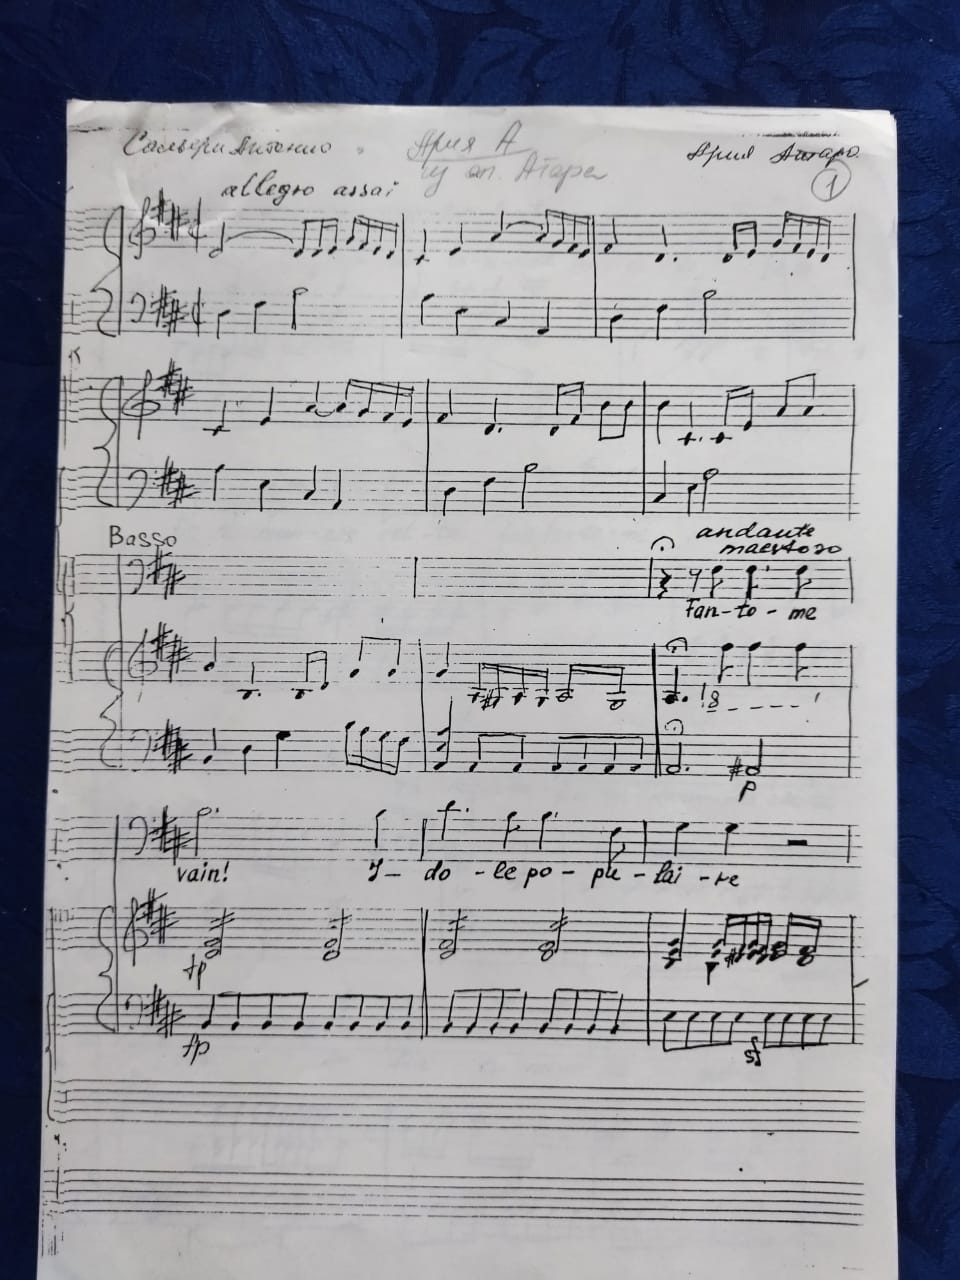 Сальери Антонио
Ария А
из оп. Атара
Ария Атаро
1
allegro assai
Basso
andante
maestoso
Fan-to-me
8
p
vain! I-do-le po-pu-lai-re
fp
p
fp
sf